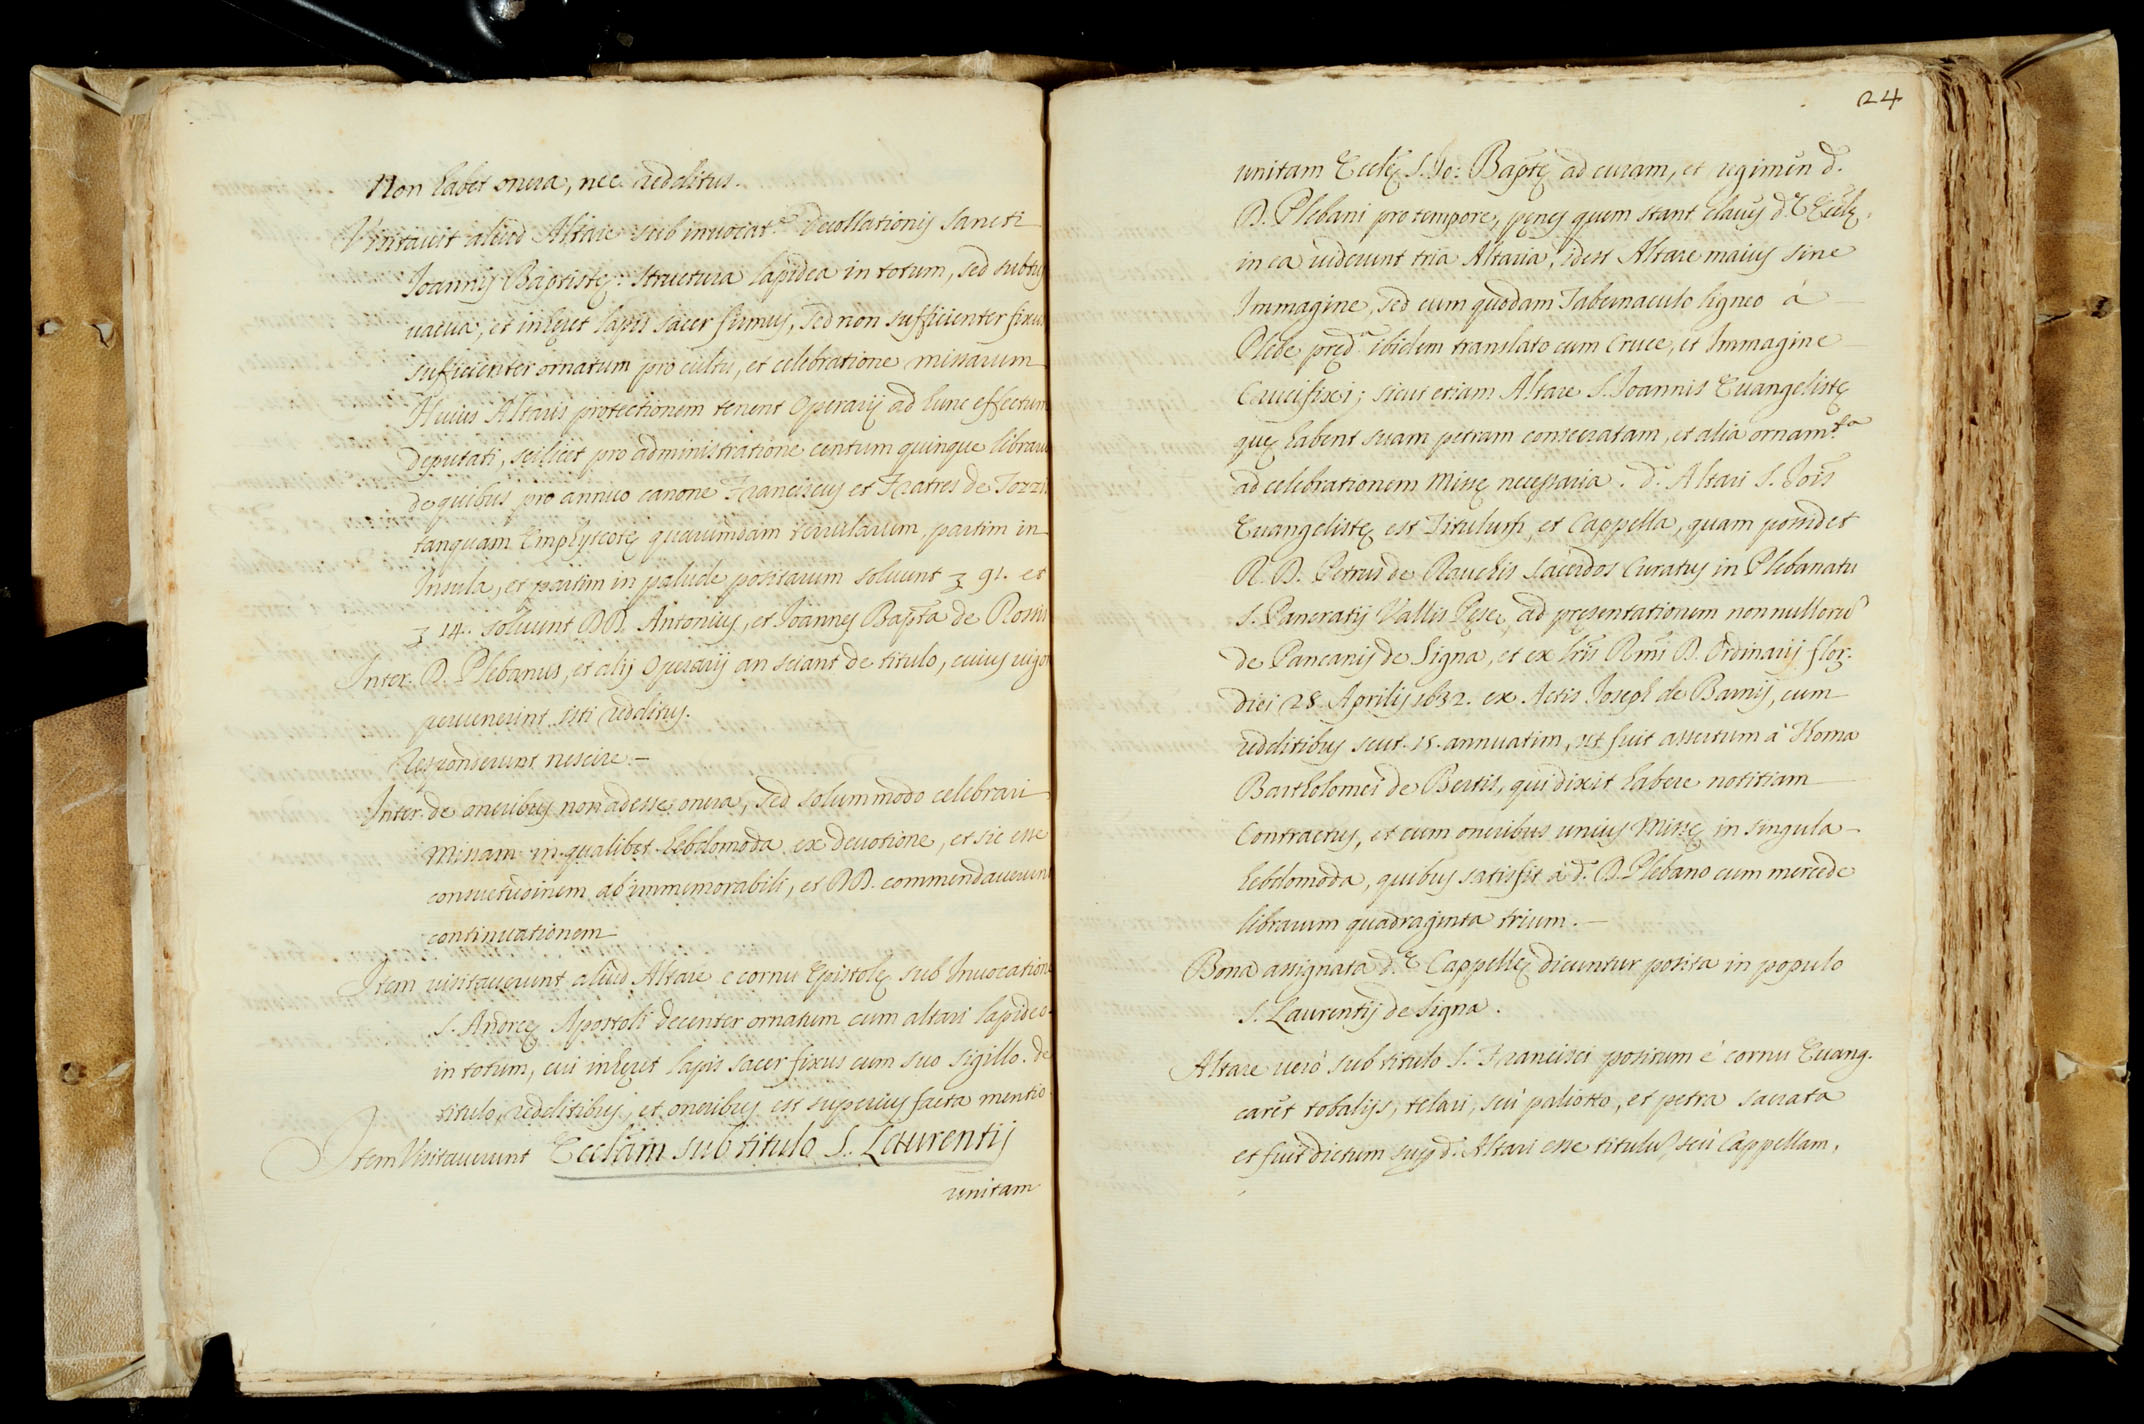 Non habet onera, nec redditus.
Visitavit aliud Altare sub invocat.e Decollationis Sancti
Joannis Baptistę: structura lapidea in totum, sed subtus
vacua, et inhęret lapis sacer firmus, sed non sufficienter fixus
sufficienter ornatum pro cultu, et celebratione missarum
Huius Altaris protectionem tenent Operarij ad hunc effectum
deputati, scilicet pro administratione centum quinque librarum
de quibus pro annuo canone Franciscus et Fratres de Tozzi
tanquam Emphyteotę quarumdam terrularum, partim in
Insula, et partim in palude positarum solvunt ʒ 91. et
ʒ 14. solvunt DD. Antonius, et Joannes Bapta de Rossi
Inter. D. Plebanus, et alij Operarij an sciant de titulo, cuius vigore
pervenerint isti redditus.
Responderunt nescire.—
Inter. de oneribus non adesse onera, sed solummodo celebrari
Missam in qualibet hebdomoda ex devotione, et sic esse
consuetudinem ab immemorabili, et DD. commendaverunt
continuationem
Item visitaverunt aliud Altare e cornu Epistolę sub Invocatione
S. Andreę Apostoli decenter ornatum cum altari lapideo
in totum, cui inhęret lapis sacer fixus cum suo sigillo. de
titulo, redditibus, et oneribus est superius facta mentio.
Item Visitaverunt Eccliam sub titulo S. Laurentij
unitam
24
unitam Eccłę S. Jo: Baptę ad curam, et regimen d.
D. Plebani pro tempore, penes quem stant claves d.ę Eccłę.
in ea viderunt tria Altaria, idest Altare maius sine
Immagine, sed cum quodam Tabernaculo ligneo à
Plebe pręd.a ibidem translato cum Cruce, et Immagine
Crucifixi; sicut etiam Altare S. Joannis Evangelistę
quę habent suam petram consecratam, et alia ornam.ta
ad celebrationem Missę necessaria. d.o Altari S. Jois
Evangelistę est Titulus, et Cappella, quam possidet
R. D. Petrus de Rauchis Sacerdos Curatus in Plebanatu
S. Pancratij Vallis Pęsę, ad pręsentationem nonnulloru
de Pancanis de Signa, et ex lris Rmi D. Ordinarij flor.
diei 28. Aprilis 1632. ex Actis Joseph de Barnis, cum
redditibus scut. 15. annuatim, ut fuit assertum à Homa
Bartholomei de Bertis, qui dixit habere notitiam
Contractus, et cum oneribus unius Missę in singula
hebdomoda, quibus satisfit à d.o D. Plebano cum mercede
librarum quadraginta trium.—
Bona assignata d.ę Cappellę dicuntur posita in populo
S. Laurentij de Signa.
Altare verò sub titulo S. Francisci positum è cornu Evang.
caret tobalijs, telari, seù paliotto, et petra sacrata
et fuit dictum sup d.o Altari esse titulu, seù Cappellam,